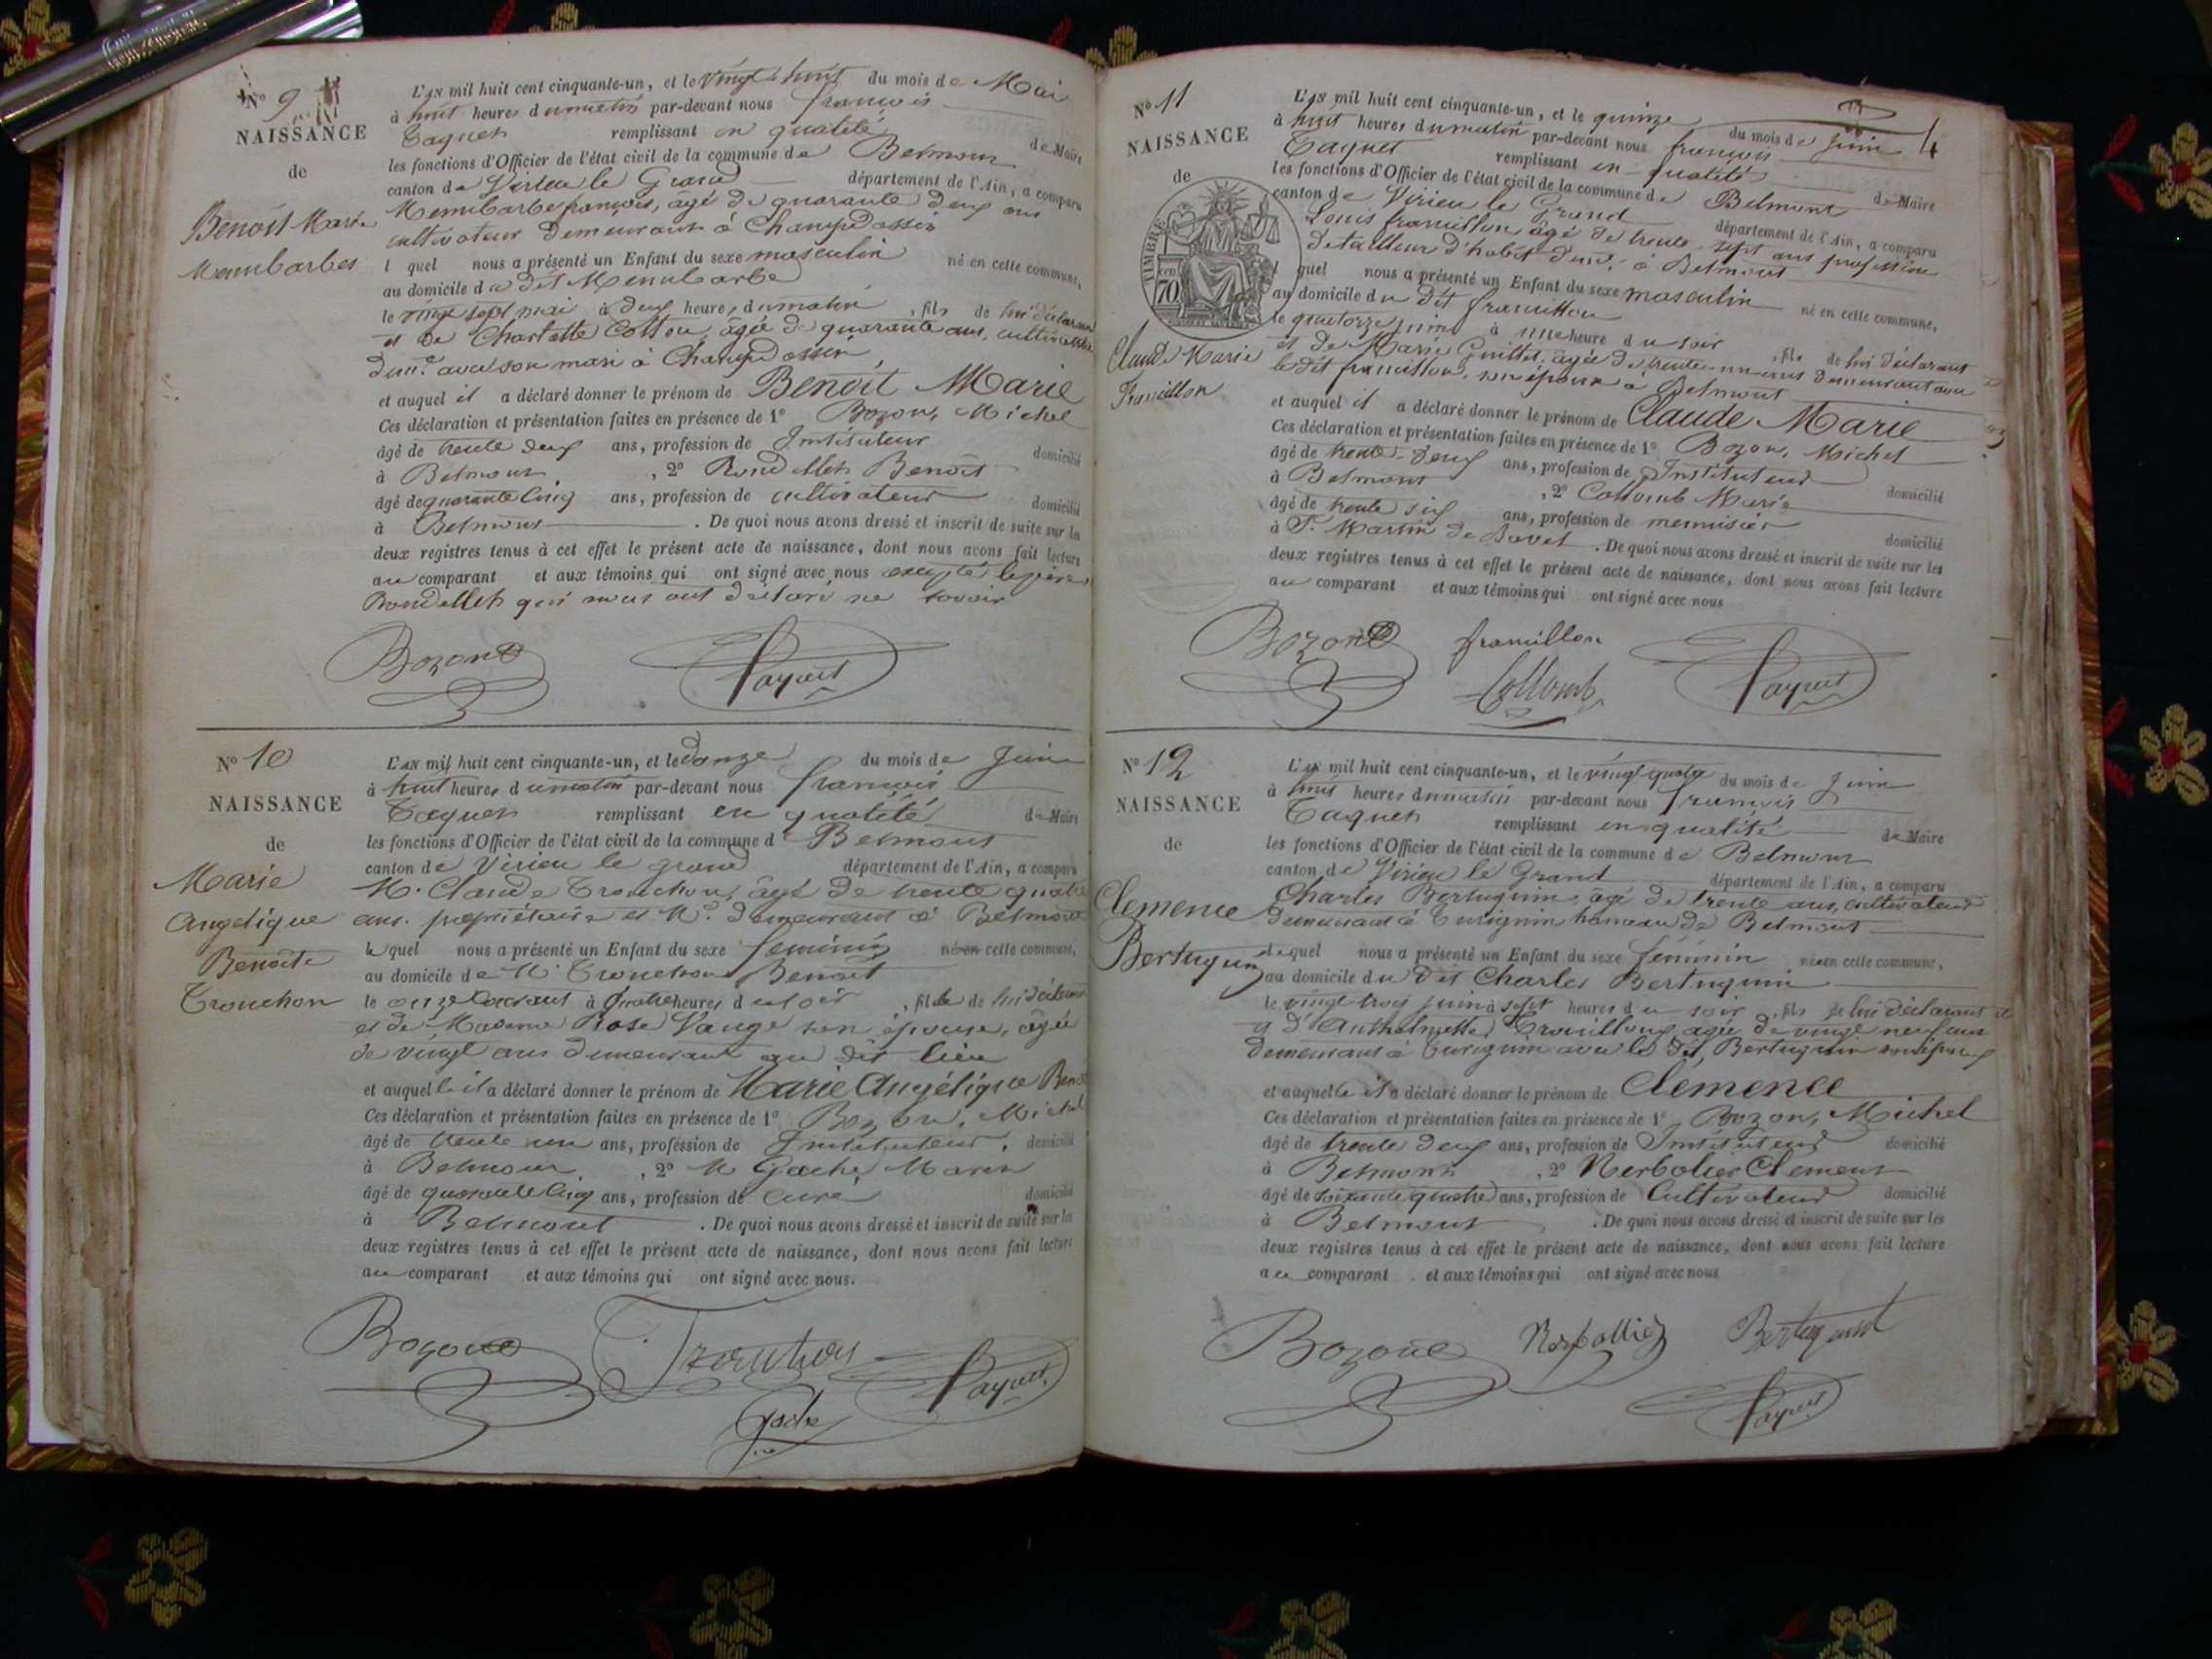 N° 9
NAISSANCE
de
Benoît Marie
Membarbes
L'AN mil huit cent cinquante-un, et le vingt huit du mois de Mai
à huit heures du matin par-devant nous françois
remplissant en qualité de Maire
les fonctions d'Officier de l'état civil de la commune de Belmont
canton de Virieu le Grand département de l'Ain, a comparu
françois, âgé de quarante deux ans
cultivateur demeurant à
l quel nous a présenté un Enfant du sexe masculin né en cette commune,
au domicile du dit
le vingt sept mai à deux heures du matin, fils de lui déclarant
et de Charlotte âgée de quarante ans,
avec son mari à
et auquel il a déclaré donner le prénom de Benoît Marie
Ces déclaration et présentation faites en présence de 1° Bozon, Michel
âgé de trente deux ans, profession de Instituteur domicilié
à Belmont, 2° Rondellet Benoît
âgé de quarante cinq ans, profession de cultivateur domicilié
à Belmont. De quoi nous avons dressé et inscrit de suite sur les
deux registres tenus à cet effet le présent acte de naissance, dont nous avons fait lecture
au comparant et aux témoins qui ont signé avec nous excepté le père
Rondellet qui nous ont déclaré ne savoir
Bozon
Payuet
N° 10
NAISSANCE
de
Marie
Angelique
Benoite
Tronchon
L'AN mil huit cent cinquante-un, et le douze du mois de Juin
à huit heures du matin par-devant nous françois
remplissant en qualité de Maire
les fonctions d'Officier de l'état civil de la commune d Belmont
canton de Virieu le grand département de l'Ain, a comparu
M. Claude Tronchon, âgé de trente quatre
ans. propriétaire et demeurant à Belmont
le quel nous a présenté un Enfant du sexe feminin né en cette commune,
au domicile de M. Tronchon Benoit
le onze courant à quatre heures du soir, fille de lui déclarant
et de Madame Rose Vange son épouse, âgée
de vingt ans demeurant au dit lieu
et auquelle il a déclaré donner le prénom de Marie Angélique
Ces déclaration et présentation faites en présence de 1° Bozon, Michel
âgé de trente un ans, profession de Instituteur, domicilié
à Belmont, 2° M Gache, Marin
âgé de quarante cinq ans, profession de curé domicilié
à Belmont. De quoi nous avons dressé et inscrit de suite sur les
deux registres tenus à cet effet le présent acte de naissance, dont nous avons fait lecture
au comparant et aux témoins qui ont signé avec nous.
Bozon Tronchon
Gache Payuet
4
N° 11
NAISSANCE
de
TIMBRE
70 CEN
Claude Marie
Francillon
L'AN mil huit cent cinquante-un, et le quinze du mois de Juin
à huit heures du matin par-devant nous françois
remplissant en qualité de Maire
les fonctions d'Officier de l'état civil de la commune de Belmont
canton de Virieu le Grand département de l'Ain, a comparu
Louis francillon âgé de trente sept ans profession
de tailleur d'habit à Belmont
l quel nous a présenté un Enfant du sexe masculin né en cette commune,
au domicile du dit francillon
le quatorze juin à une heure du soir, fils de lui déclarant
et de Marie Guillet, âgée de trente un ans demeurant avec
le dit francillon, son époux à Belmont
et auquel il a déclaré donner le prénom de Claude Marie
Ces déclaration et présentation faites en présence de 1° Bozon, Michel
âgé de trente-deux ans, profession de Instituteur domicilié
à Belmont, 2° Collomb Marie
âgé de trente six ans, profession de menuisier domicilié
à St. Martin de Bavel. De quoi nous avons dressé et inscrit de suite sur les
deux registres tenus à cet effet le présent acte de naissance, dont nous avons fait lecture
au comparant et aux témoins qui ont signé avec nous
Bozon francillon
Collomb Payuet
N° 12
NAISSANCE
de
Clemence
Bertuguin
L'AN mil huit cent cinquante-un, et le vingt quatre du mois de Juin
à huit heures du matin par-devant nous françois
remplissant en qualité de Maire
les fonctions d'Officier de l'état civil de la commune de Belmont
canton de Virieu le Grand département de l'Ain, a comparu
Charles Bertuguin, âgé de trente ans, cultivateur
demeurant à hameau de Belmont
lequel nous a présenté un Enfant du sexe féminin né en cette commune,
au domicile du dit Charles Bertuguin
le vingt trois juin à sept heures du soir, fils de lui déclarant
et d' Anthelmette âgée de vingt neuf ans
demeurant à avec le dit Bertuguin
et auquelle il a déclaré donner le prénom de Clémence
Ces déclaration et présentation faites en présence de 1° Bozon, Michel
âgé de trente deux ans, profession de Instituteur domicilié
à Belmont, 2° Clement
âgé de soixante quatre ans, profession de Cultivateur domicilié
à Belmont. De quoi nous avons dressé et inscrit de suite sur les
deux registres tenus à cet effet le présent acte de naissance, dont nous avons fait lecture
au comparant et aux témoins qui ont signé avec nous
Bozon
Payuet